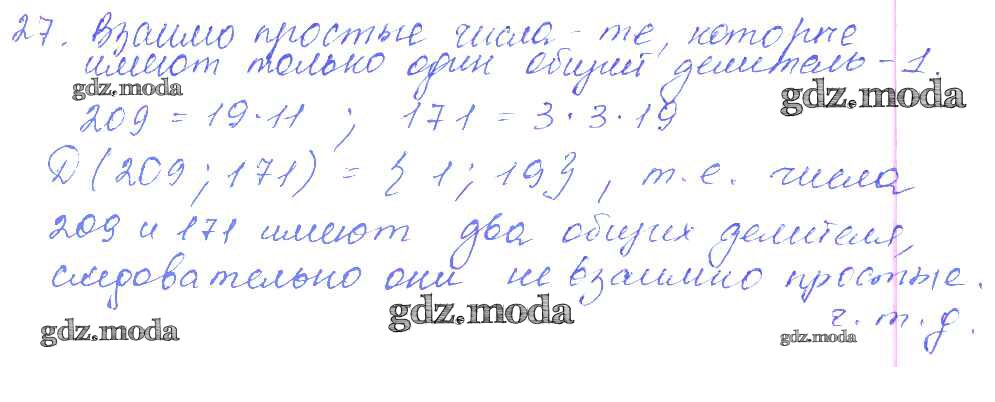 27. Взаимо простые числа - те, которые
имеют только один общий делитель - 1.
gdz.moda
gdz.moda
209 = 19·11 ; 171 = 3·3·19
D (209 ; 171) = { 1 ; 19} , т.е. числа
209 и 171 имеют два общих делителя,
следовательно они не взаимно простые.
gdz.moda
ч.т.д.
gdz.moda
gdz.moda